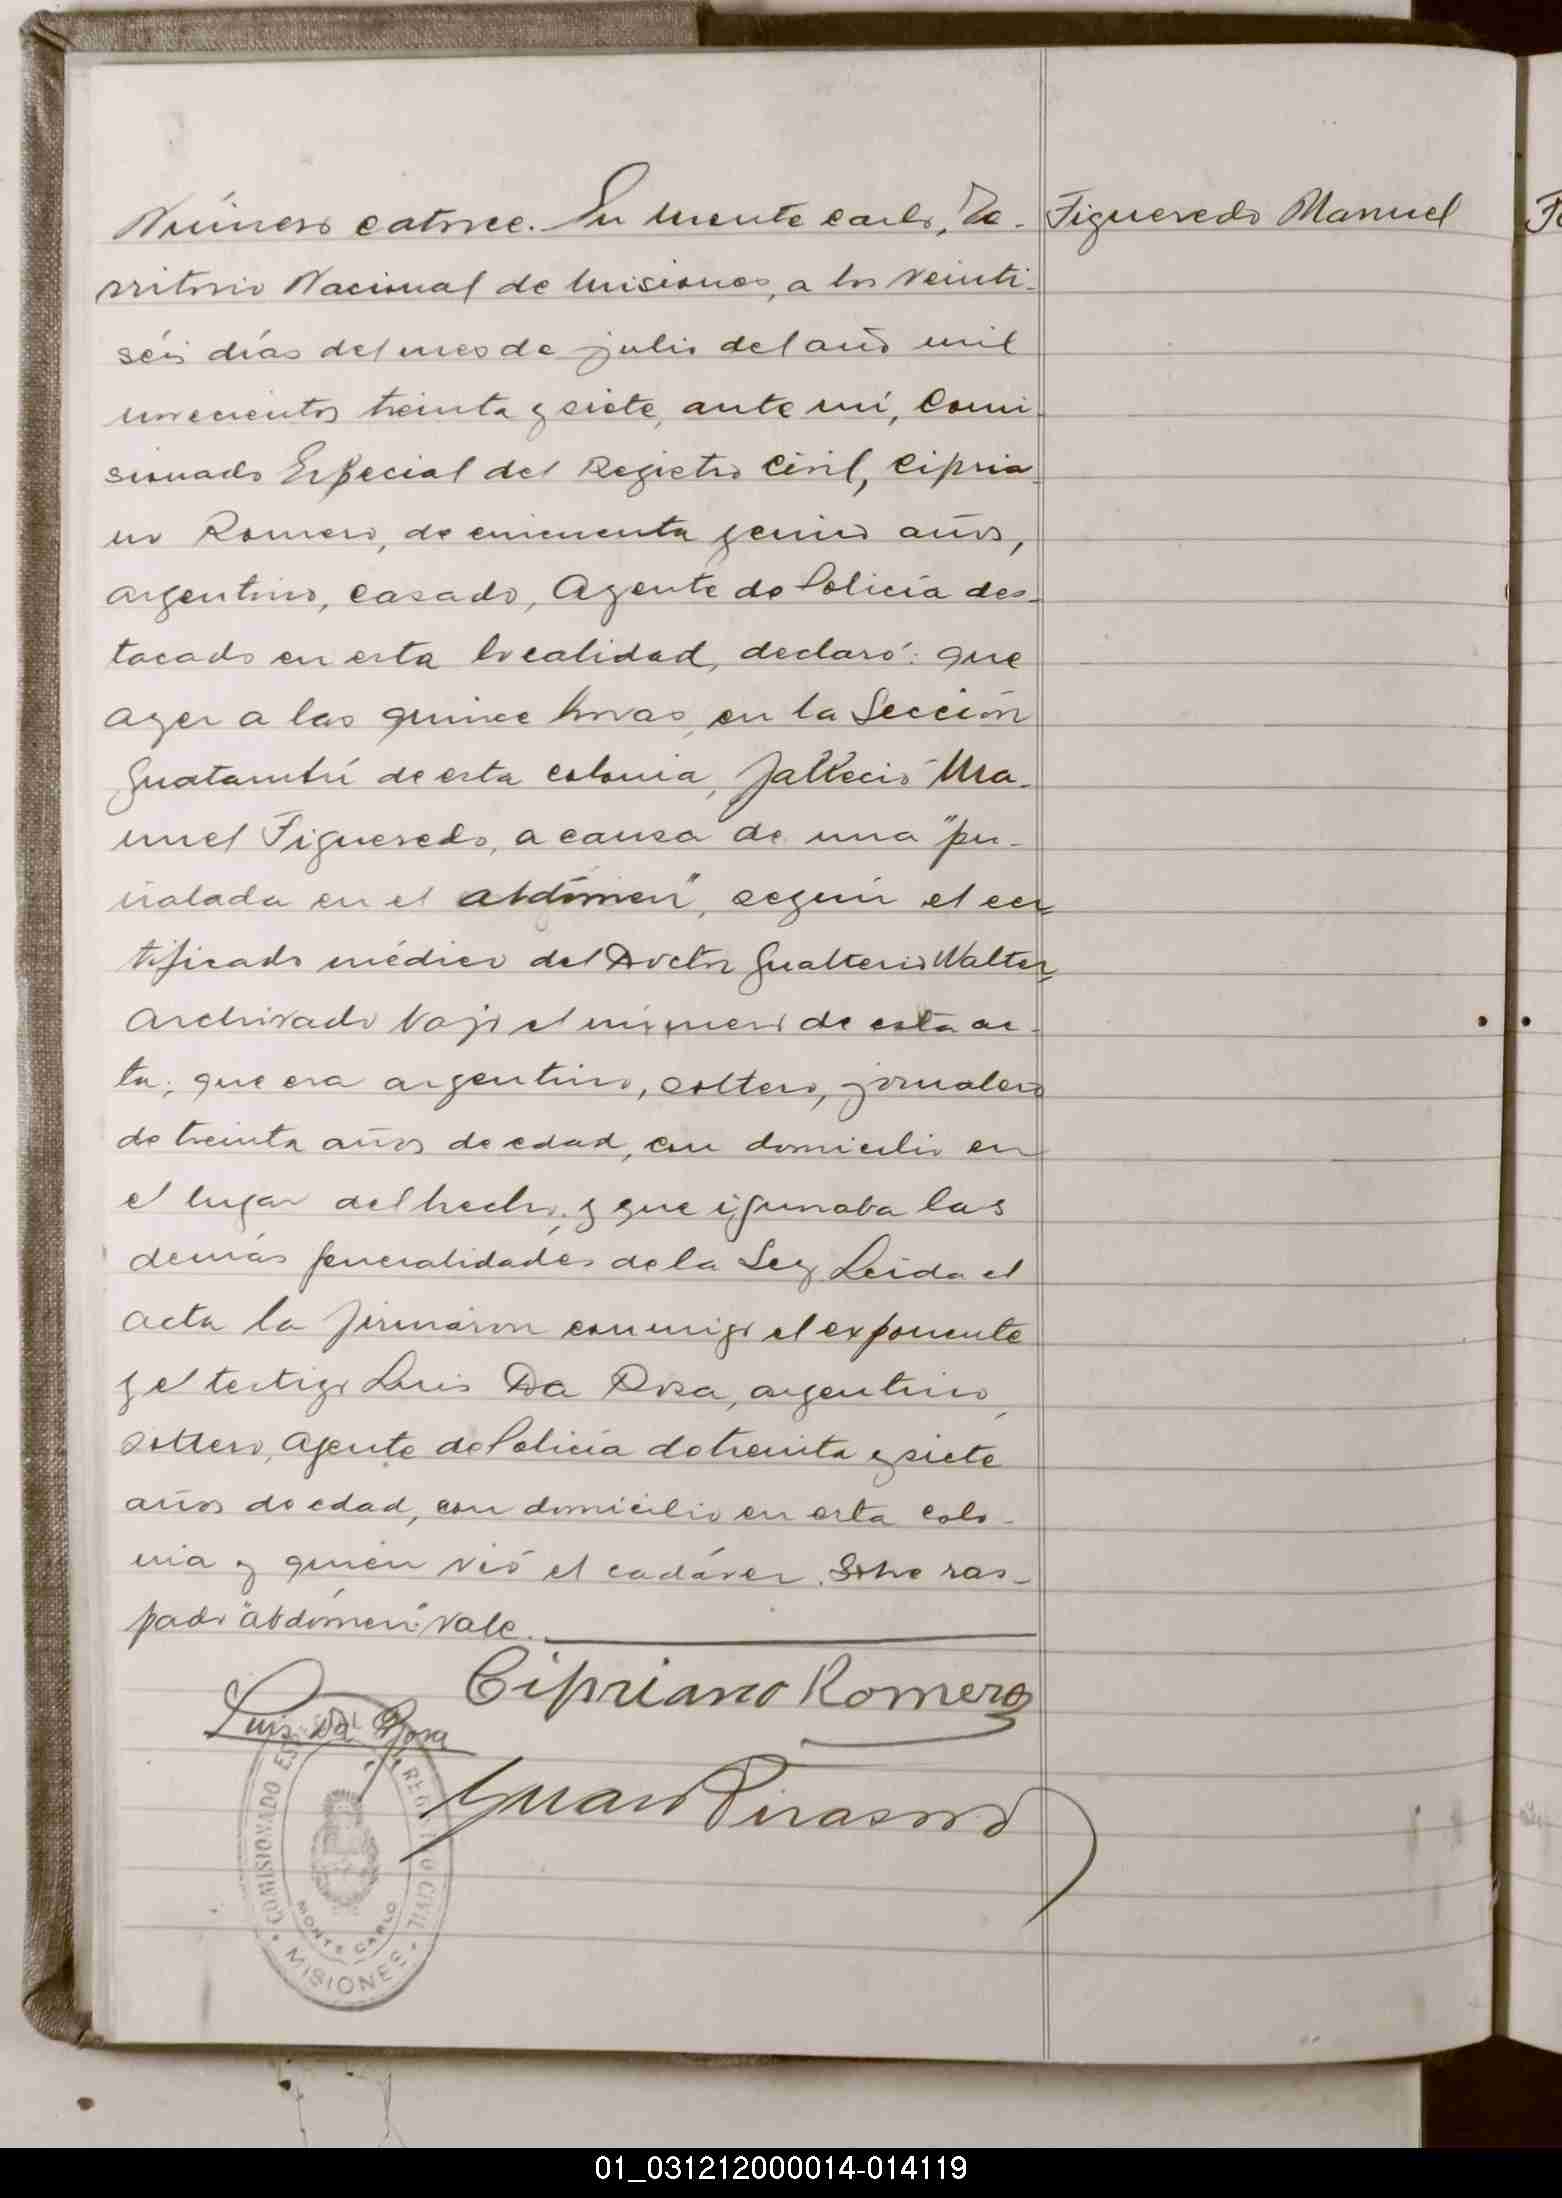 Número catorce. En Monte Carlo, Te-
Figueredo Manuel
rritorio Nacional de Misiones, a los veinti-
séis días del mes de julio del año mil
novecientos treinta y siete, ante mí, Comi-
sionado Especial del Registro Civil, Cipria-
no Romero, de cincuenta y cinco años,
argentino, casado, Agente de Policía des-
tacado en esta localidad, declaró: que
ayer a las quince horas, en la Sección
Guatambú de esta colonia, falleció Ma-
nuel Figueredo, a causa de una "pu-
ñalada en el abdómen", según el cer-
tificado médico del Doctor Gualterio Walter,
archivado bajo el número de esta ac-
ta; que era argentino, soltero, jornalero
de treinta años de edad, con domicilio en
el lugar del hecho, y que ignoraba las
demás generalidades de la Ley. Leída el
acta la firmaron conmigo el exponente
y el testigo Luis Da Rosa, argentino,
soltero, Agente de Policía de treinta y siete
años de edad, con domicilio en esta colo-
nia y quien vió el cadáver. Sobre ras-
pado "abdómen" vale.
Cipriano Romero
Luis Da Rosa
COMISIONADO ESPECIAL REGISTRO CIVIL
MONTE CARLO
MISIONES
01_031212000014-014119